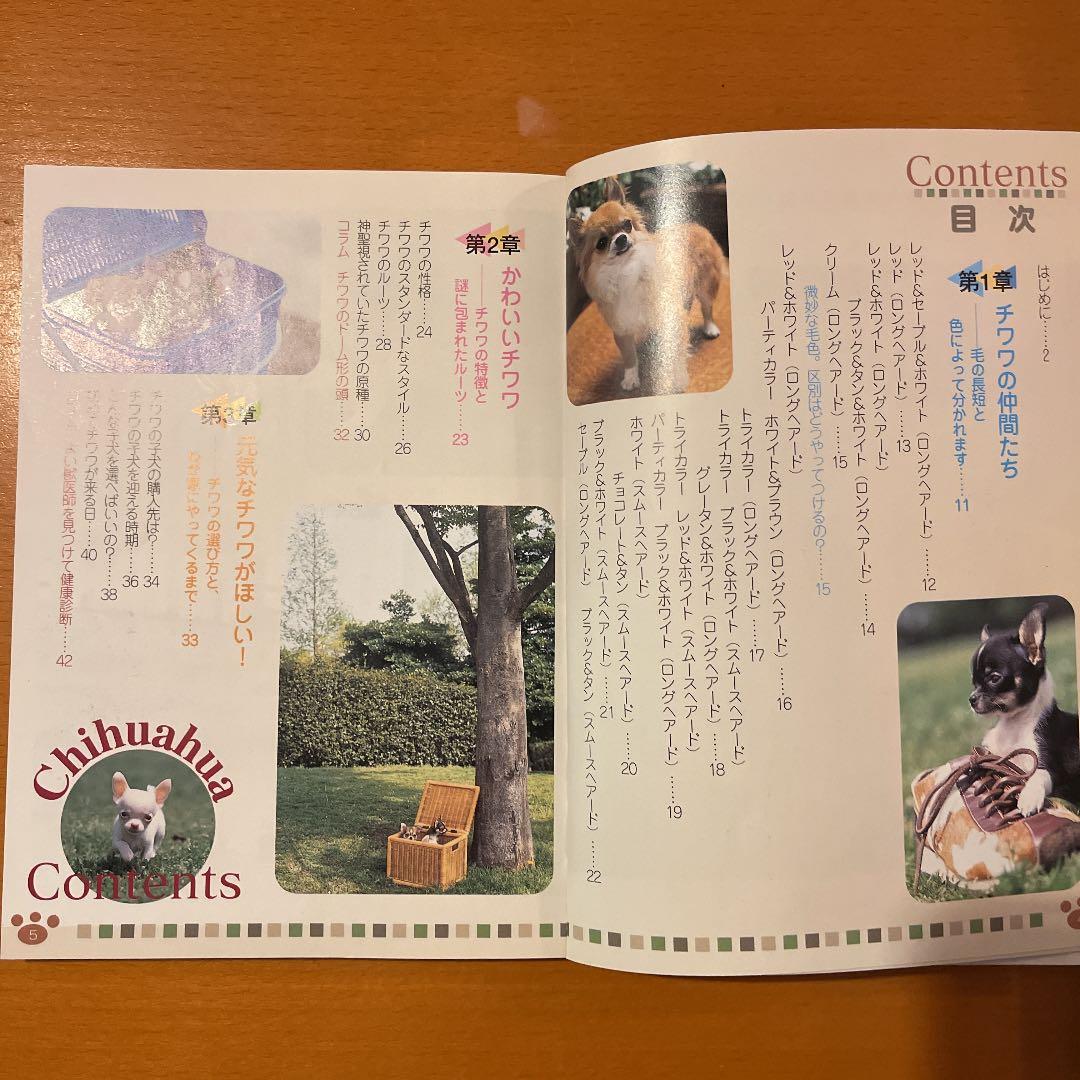 Contents
目次
はじめに……2
第1章 チワワの仲間たち
――毛の長短と
色によって分かれます……11
レッド&セーブル&ホワイト（ロングヘアード）……12
レッド（ロングヘアード）……13
レッド&ホワイト（ロングヘアード）
ブラック&タン&ホワイト（ロングヘアード）……14
クリーム（ロングヘアード）……15
微妙な毛色。区別はどうやってつけるの？……15
レッド&ホワイト（ロングヘアード）
パーティカラー ホワイト&ブラウン（ロングヘアード）……16
トライカラー（ロングヘアード）……17
トライカラー ブラック&ホワイト（スムースヘアード）
グレータン&ホワイト（ロングヘアード）……18
トライカラー レッド&ホワイト（スムースヘアード）
パーティカラー ブラック&ホワイト（ロングヘアード）……19
ホワイト（スムースヘアード）
チョコレート&タン（スムースヘアード）……20
ブラック&ホワイト（スムースヘアード）……21
セーブル（ロングヘアード） ブラック&タン（スムースヘアード）……22
第2章 かわいいチワワ
――チワワの特徴と
謎に包まれたルーツ……23
チワワの性格……24
チワワのスタンダードなスタイル……26
チワワのルーツ……28
神聖視されていたチワワの原種……30
コラム チワワのドーム形の頭……32
第3章 元気なチワワがほしい！
――チワワの選び方と、
にやってくるまで……33
チワワの子犬の購入先は？……34
チワワの子犬を迎える時期……36
な子犬を選べばいいの？……38
チワワが来る日……40
い獣医師を見つけて健康診断……42
Chihuahua
Contents
5